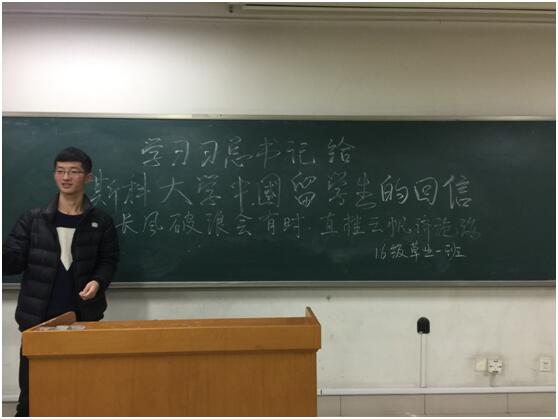 学习习总书记给
斯科大学中國留学生的回信
长风破浪会有时，直挂云帆济沧海
16级草业一班